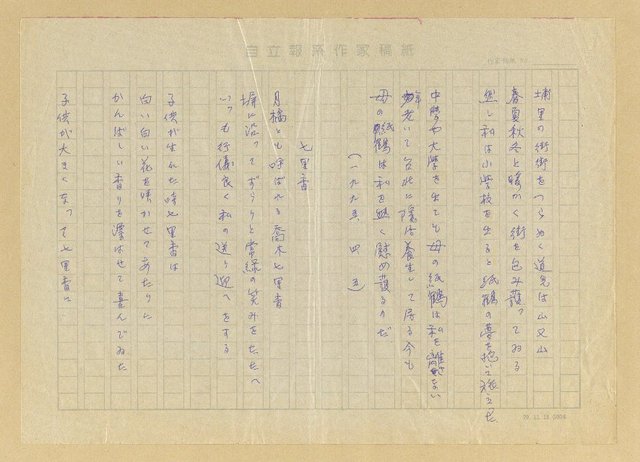 自立報系作家稿紙
埔里の街街をつらぬく道先は山又山
春夏秋冬と暖かく街を包み護ってゐる
然し私は小学校を出ると紙鶴の夢を抱いて旅立った
中学や大学を出ても母の紙鶴は私を離れない
年老いて台北に隠居養生して居る今も
母の紙鶴は私を無く慰め護るのだ
(一九九五、四、五)
七里香
月橘とも呼ばれる喬木七里香
塀に沿ってずらりと常緑の笑みをたたへ
いつも行儀良く私の送り迎へをする
子供が生れた時七里香は
白い白い花を咲かせてあたりに
かんばしい香りを漂はせて喜んでゐた
子供が大きくなって七里香に